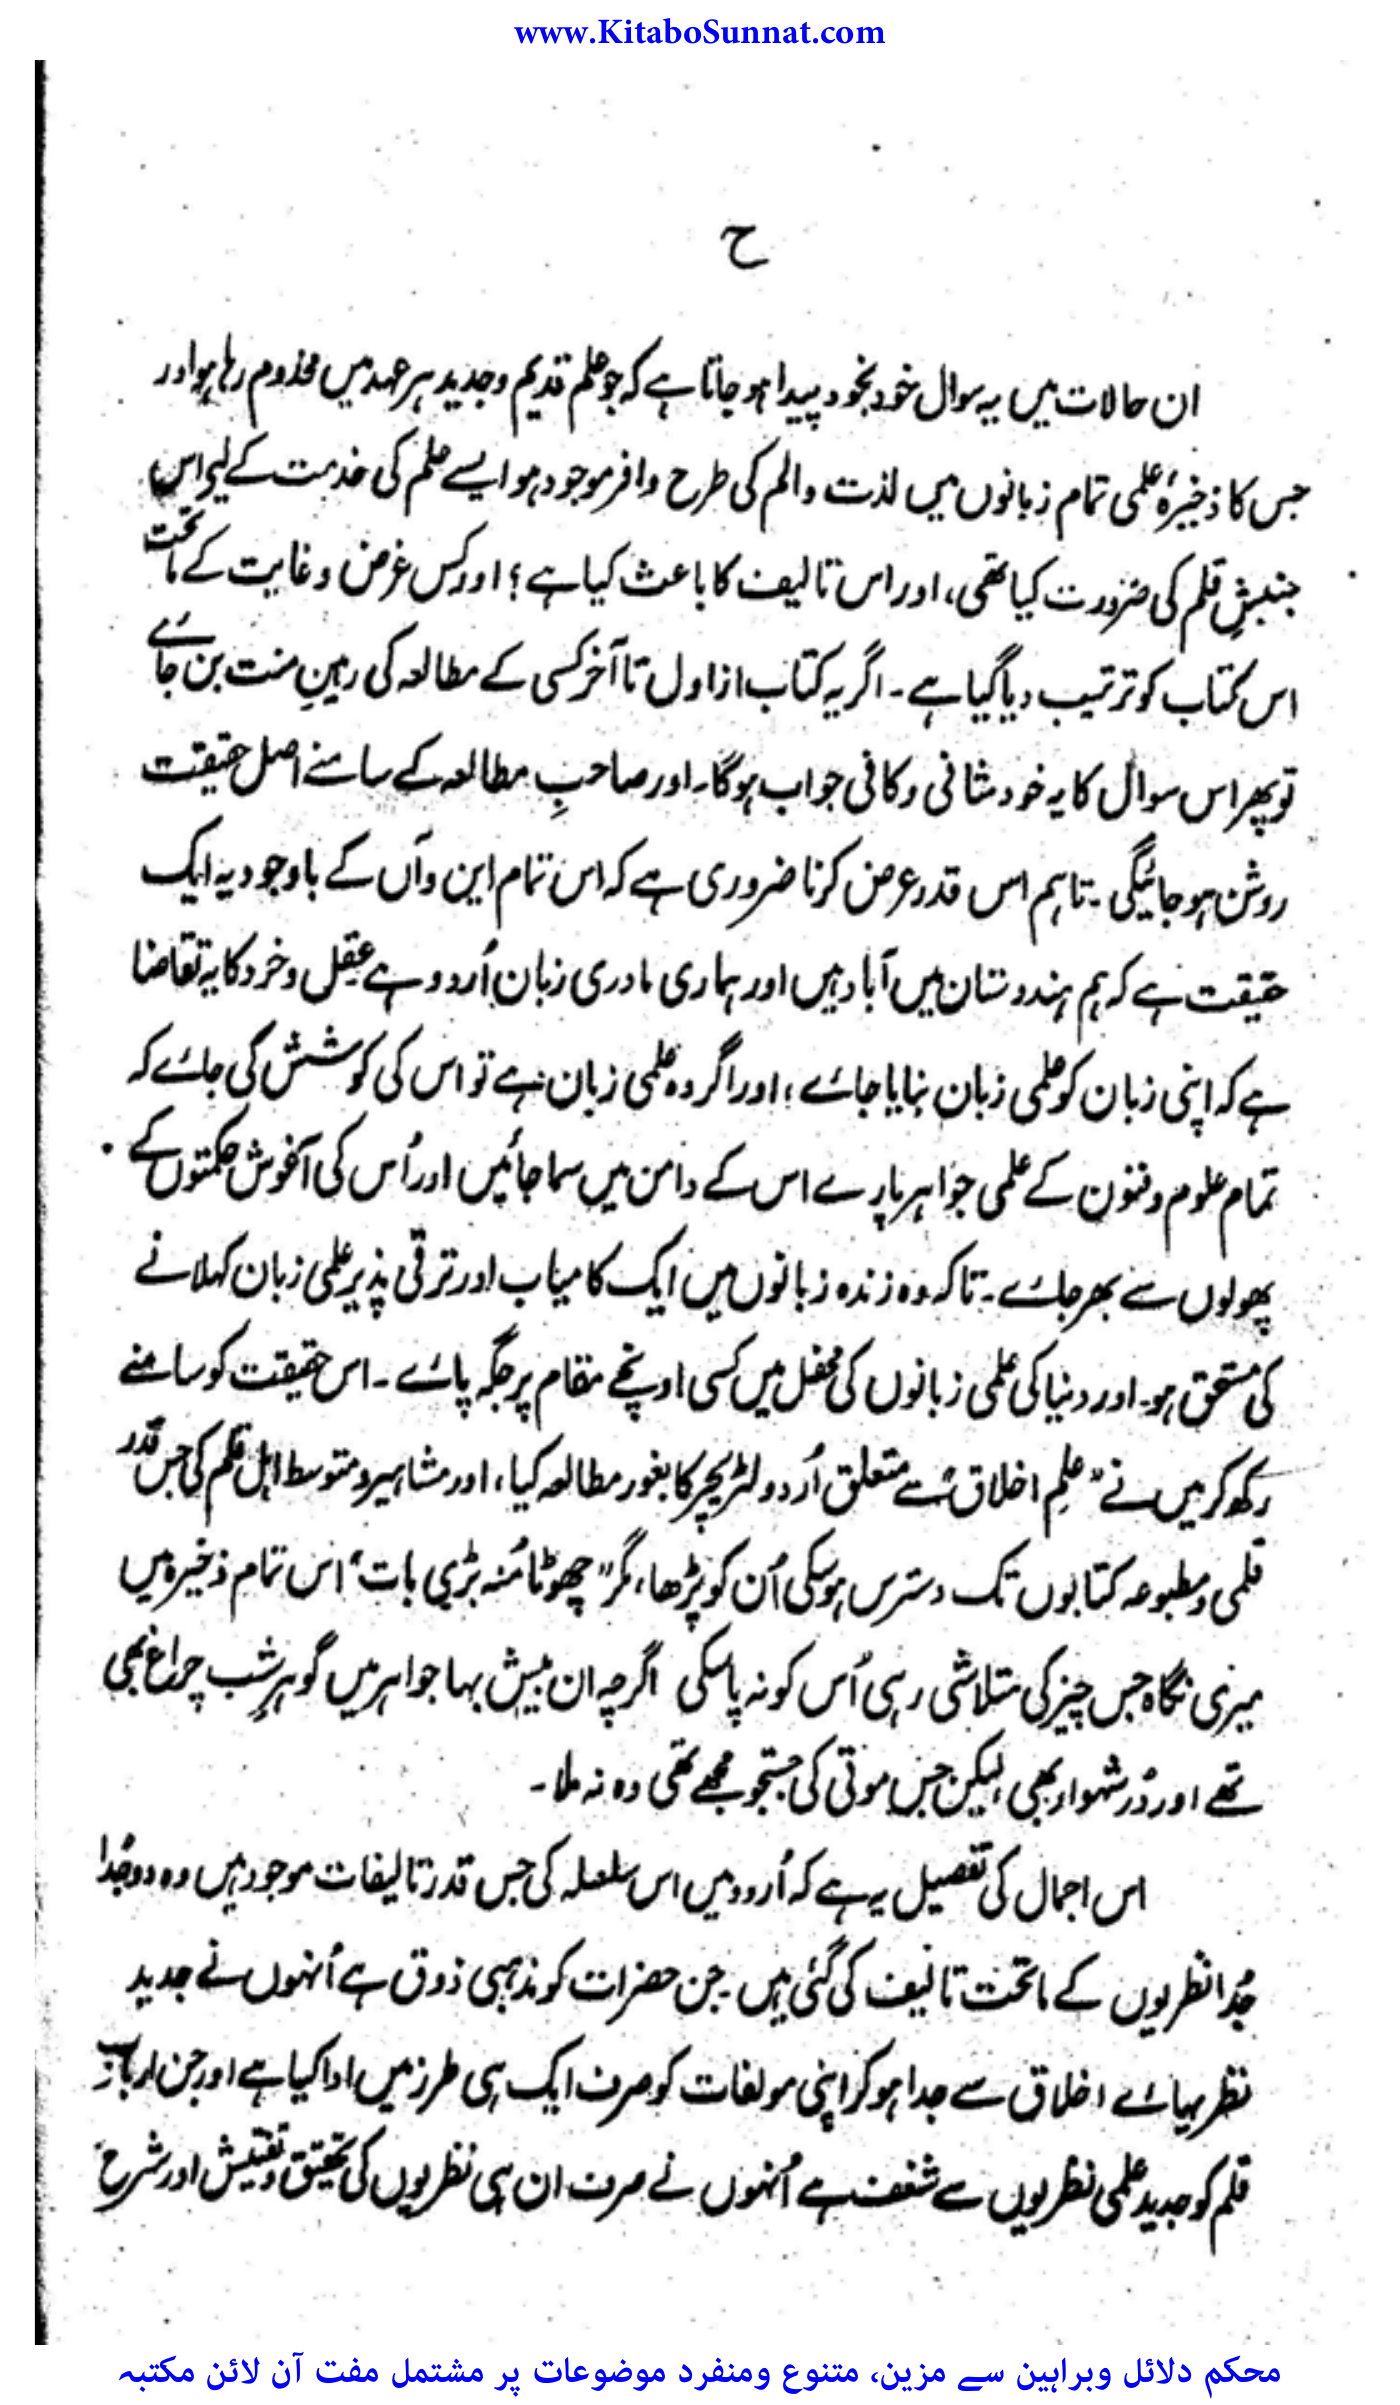 www.KitaboSunnat.com
ح
ان حالات میں یہ سوال خود بخود پیدا ہو جاتا ہے کہ جو علم قدیم و جدید ہر عہد میں مخدوم رہا ہو اور
جس کا ذخیرۂ علمی تمام زبانوں میں لذت و الم کی طرح وافر موجود ہو ایسے علم کی خدمت کے لیے اس
جنبشِ قلم کی ضرورت کیا تھی، اور اس تالیف کا باعث کیا ہے؟ اور کس غرض و غایت کے ماتحت
اس کتاب کو ترتیب دیا گیا ہے۔ اگر یہ کتاب از اول تا آخر کسی کے مطالعہ کی رہینِ منت بن جائے
تو پھر اس سوال کا یہ خود شافی و کافی جواب ہوگا۔ اور صاحبِ مطالعہ کے سامنے اصل حقیقت
روشن ہو جائیگی۔ تاہم اس قدر عرض کرنا ضروری ہے کہ اس تمام این و آں کے باوجود یہ ایک
حقیقت ہے کہ ہم ہندوستان میں آباد ہیں اور ہماری مادری زبان اُردو ہے عقل و خرد کا یہ تقاضا
ہے کہ اپنی زبان کو علمی زبان بنایا جائے، اور اگر وہ علمی زبان ہے تو اس کی کوشش کی جائے کہ
تمام علوم و فنون کے علمی جواہر پارے اس کے دامن میں سما جائیں اور اُس کی آغوش حکمتوں کے
پھولوں سے بھر جائے۔ تاکہ وہ زندہ زبانوں میں ایک کامیاب اور ترقی پذیر علمی زبان کہلانے
کی مستحق ہو۔ اور دنیا کی علمی زبانوں کی محفل میں کسی اونچے مقام پر جگہ پائے۔ اس حقیقت کو سامنے
رکھ کر میں نے "علمِ اخلاق" سے متعلق اُردو لٹریچر کا بغور مطالعہ کیا، اور مشاہیر و متوسط اہل قلم کی جس قدر
قلمی و مطبوعہ کتابوں تک دسترس ہوسکی اُن کو پڑھا، مگر "چھوٹا مُنہ بڑی بات" اس تمام ذخیرہ میں
میری نگاہ جس چیز کی متلاشی رہی اُس کو نہ پاسکی اگرچہ ان بیش بہا جواہر میں گوہرِ شب چراغ بھی
تھے اور دُرِ شہوار بھی لیکن جس موتی کی جستجو مجھے تھی وہ نہ ملا۔
اس اجمال کی تفصیل یہ ہے کہ اُردو میں اس سلسلہ کی جس قدر تالیفات موجود ہیں وہ دو جُدا
جُدا نظریوں کے ماتحت تالیف کی گئی ہیں۔ جن حضرات کو مذہبی ذوق ہے اُنہوں نے جدید
نظریہائے اخلاق سے جدا ہو کر اپنی مولفات کو صرف ایک ہی طرز میں ادا کیا ہے اور جن اربابِ
قلم کو جدید علمی نظریوں سے شغف ہے اُنہوں نے صرف ان ہی نظریوں کی تحقیق و تفتیش اور شرح
محکم دلائل وبراہین سے مزین، متنوع ومنفرد موضوعات پر مشتمل مفت آن لائن مکتبہ